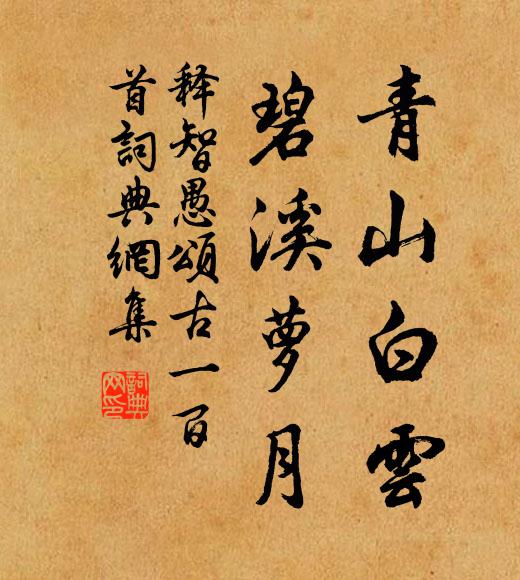 青山白雲
碧溪萝月
释智愚頌古一百
首詞典網集
詞典
网印